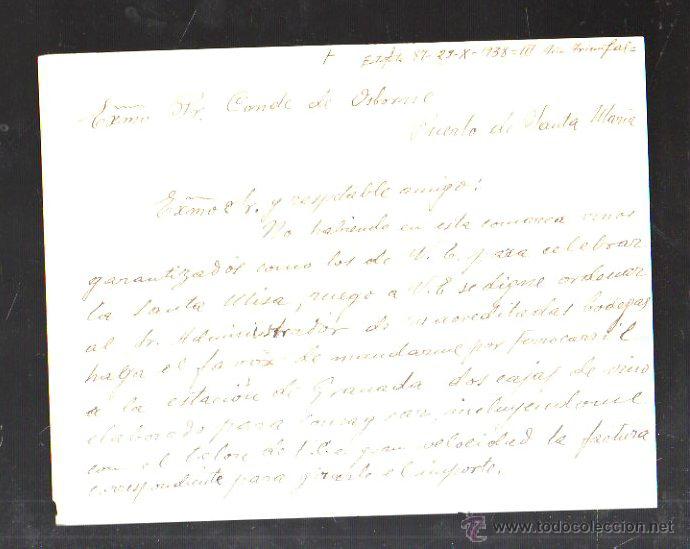 +
29-X-1938-III
Exmo Sr. Conde de Osborne
Puerto de Santa Maria
Exmo Sr. y respetable amigo:
No habiendo en esta comarca vinos
garantizados como los de V. E. para celebrar
la Santa Misa, ruego a V. E. se digne ordenar
al Sr. Administrador de sus acreditadas bodegas
haga el favor de mandarme por ferrocarril
a la estación de Granada dos cajas de vino
elaborado para consagrar, incluyendome
con el talon de gran velocidad la factura
correspondiente para girarle el importe.
todocoleccion
© www.todocoleccion.net